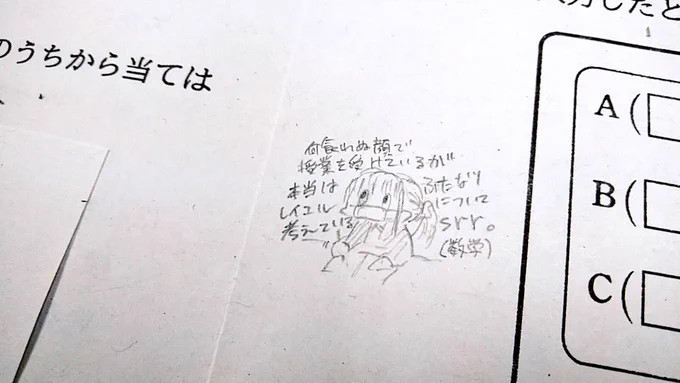 のうちから当ては
A(
B(
C(
何食わぬ顔で
授業を受けているが
本当は
ふたなり
レイエル
について
考えている
srr。
(数学)